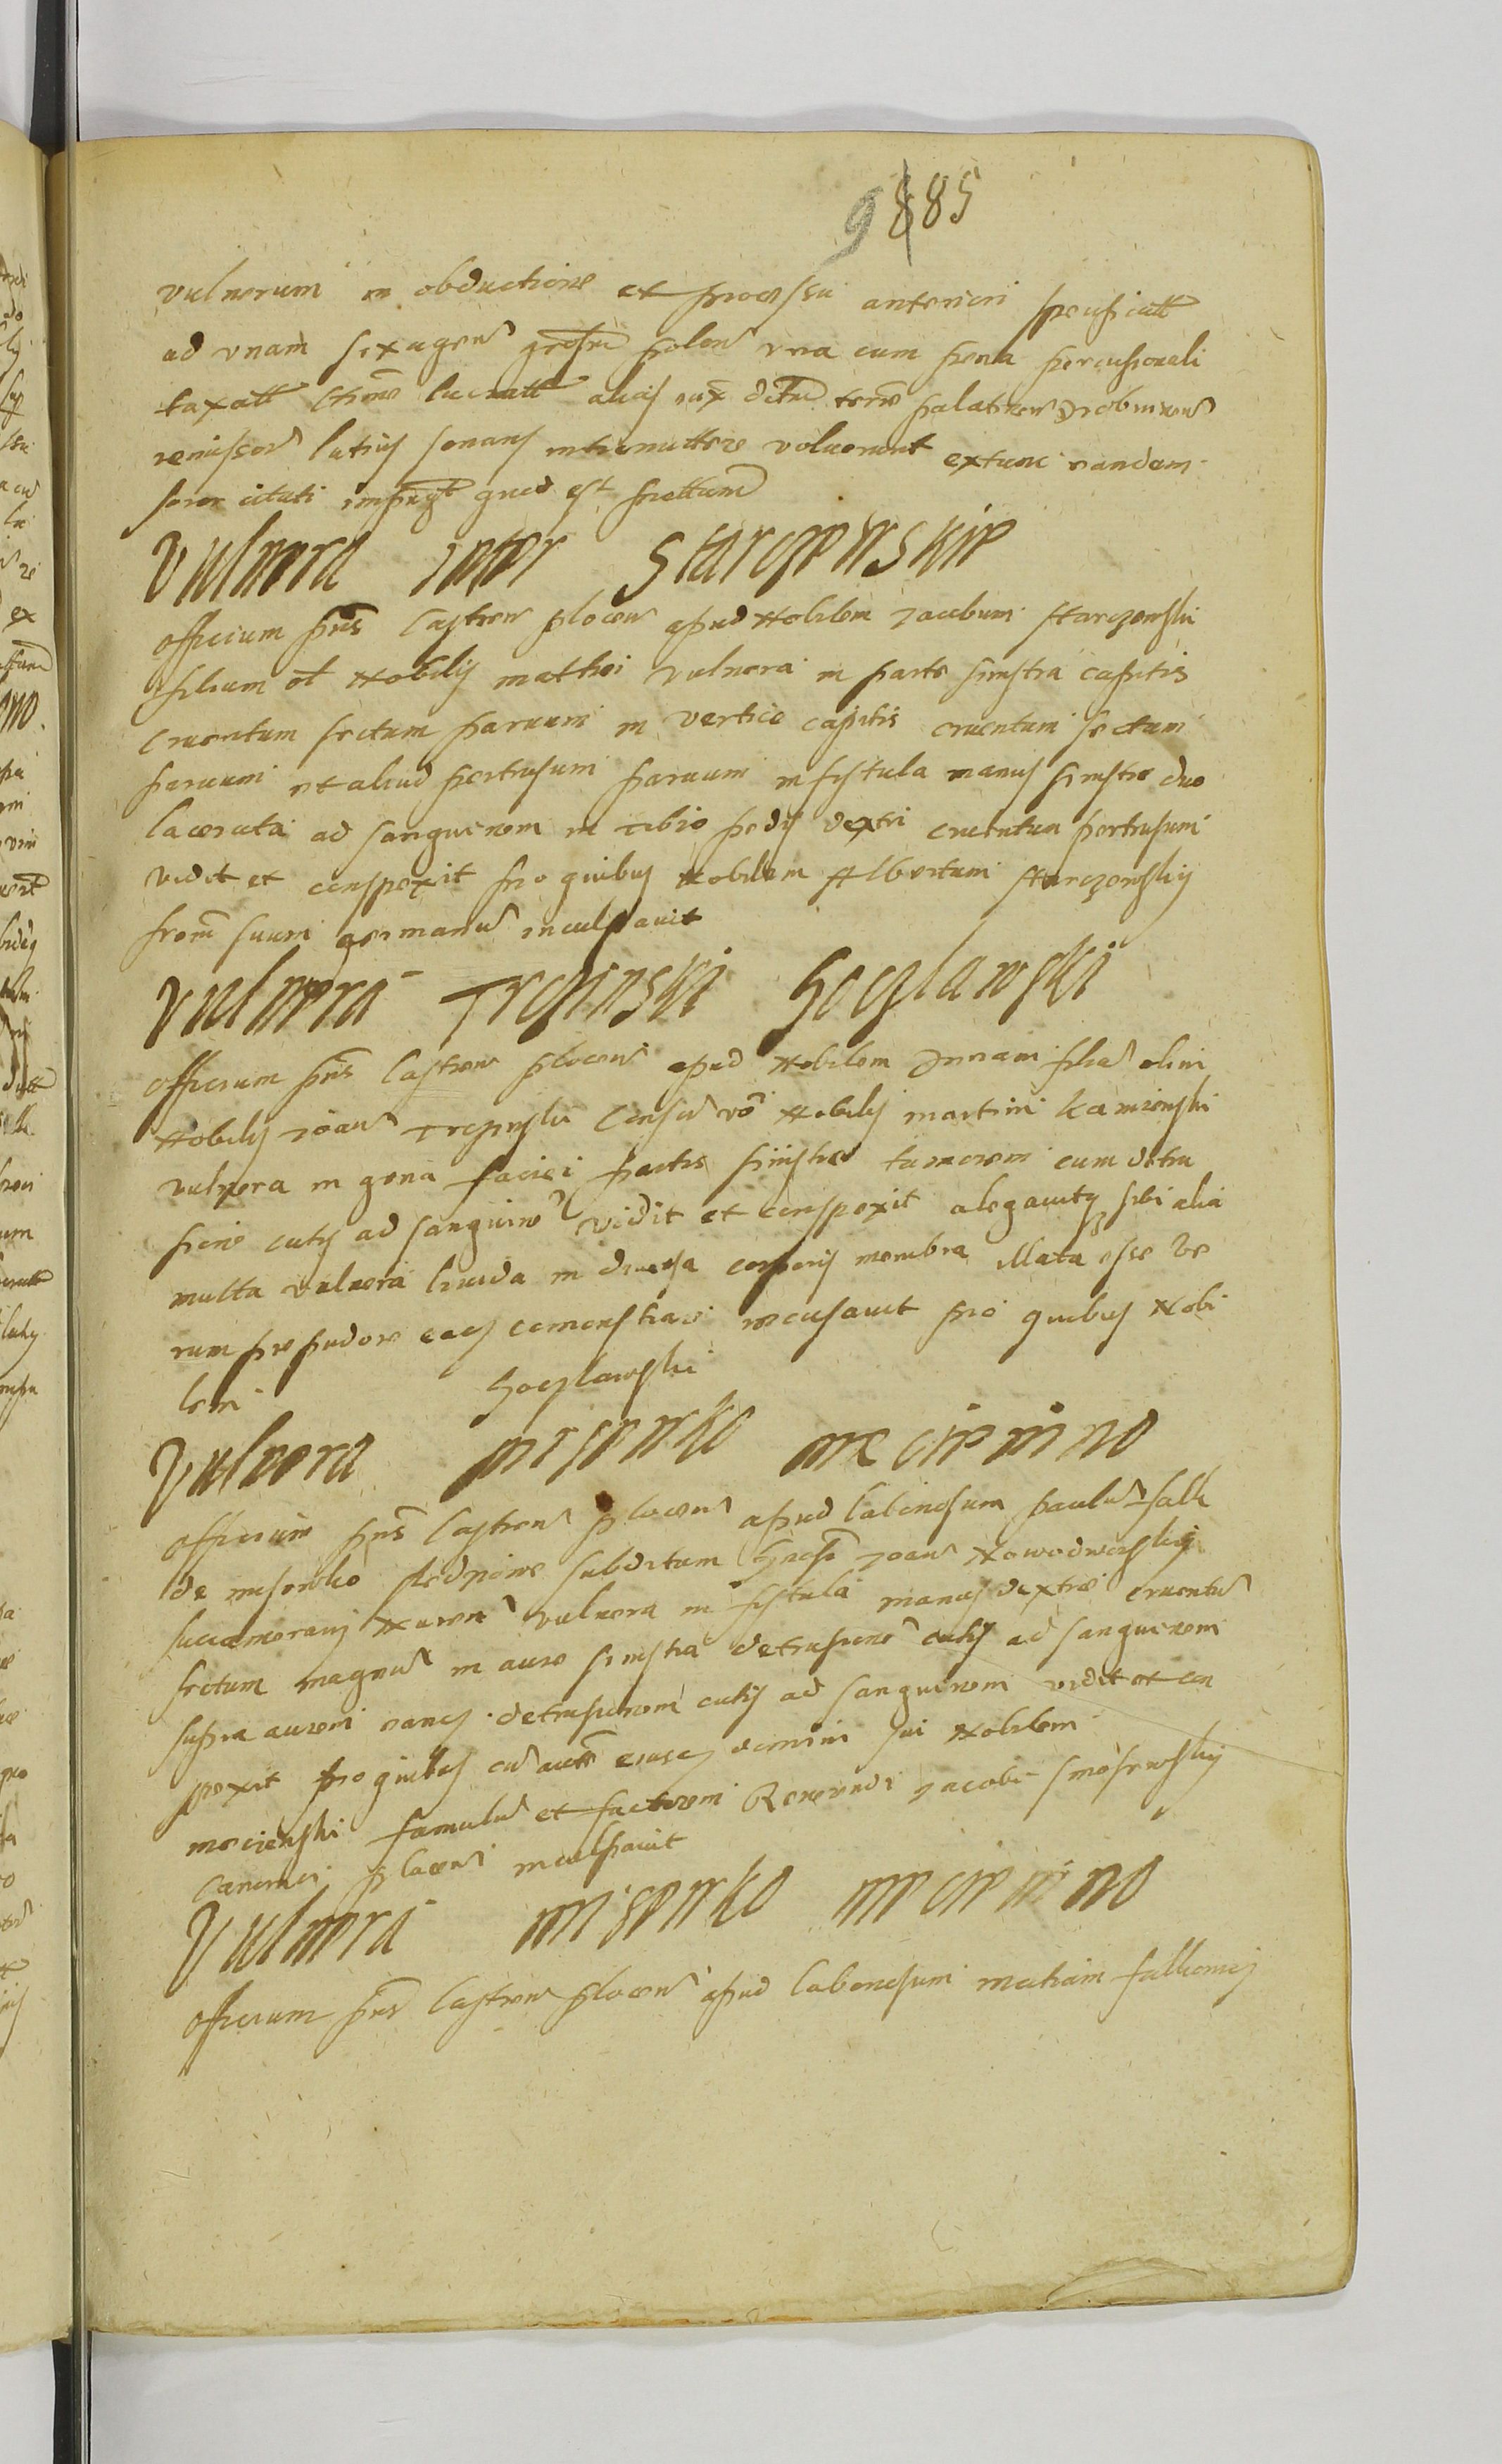 9885
vulnerum in obductione et processu anteriori specificatt
ad vnam sexagen grossor polon vna cum pena percussionali
taxatt lucratt alias palatinen Dobrinen
remissor latius sonans intromittere voluerunt extunc eandem
soror citati impingt quod est factum
Vulnera inter Starczewskie
Officium pns Castren Plocen apud Nobilem Jacobum Starczewski
filium ol Nobilis Mathei vulnera in parte sinistra capitis
cruentum sectum paruum in vertice capitis cruentum sectum
paruum et aliud pertrusum paruum in fistula manus sinistre duo
lacerata ad sanguinem in tibio pedis dextri cruentum pertrusum
vidit et conspexit pro quibus Nobilem Albertum Starczewskij
frem suum germanu inculpauit
Vulnera Trepinski Goczlawski
Officium pns Castren Plocen apud Nobilem Annam filia olim
Nobilis Joan Trepinski Consor vo Nobilis Martini Kamienski
vulnera in gena faciei partis sinistre tumorem cum detru
sione cutis ad sanguine vidit et conspexit alegauitq sibi alia
multa vulnera liuida in diuersa corporis membra illata esse ve
rum pre pudore eas demonstrare recusauit pro quibus Nobi
lem Goczlawski
Vulnera Misewko Mecinino
Officium pns Castren Plocen apud laboriosum Paulu Falk
de Misewko subditum Gnosi Joan Nowodworskij
Succamerarij vulnera in fistula manus dextre cruentu
sectum magnu in aure sinistra detrusione cutis ad sanguinem
supra aurem eancz detrusionem cutis ad sanguinem vidit et con
spexit pro quibus cu autte eiuscz domini sui Nobilem
Mecienski famulu et factorem Reverendi Jacobi
Canonici Plocen inculpauit
Vulnera Misewko Mecinino
Officium pns Castren Plocen apud laboriosum Mathiam Falkowicz